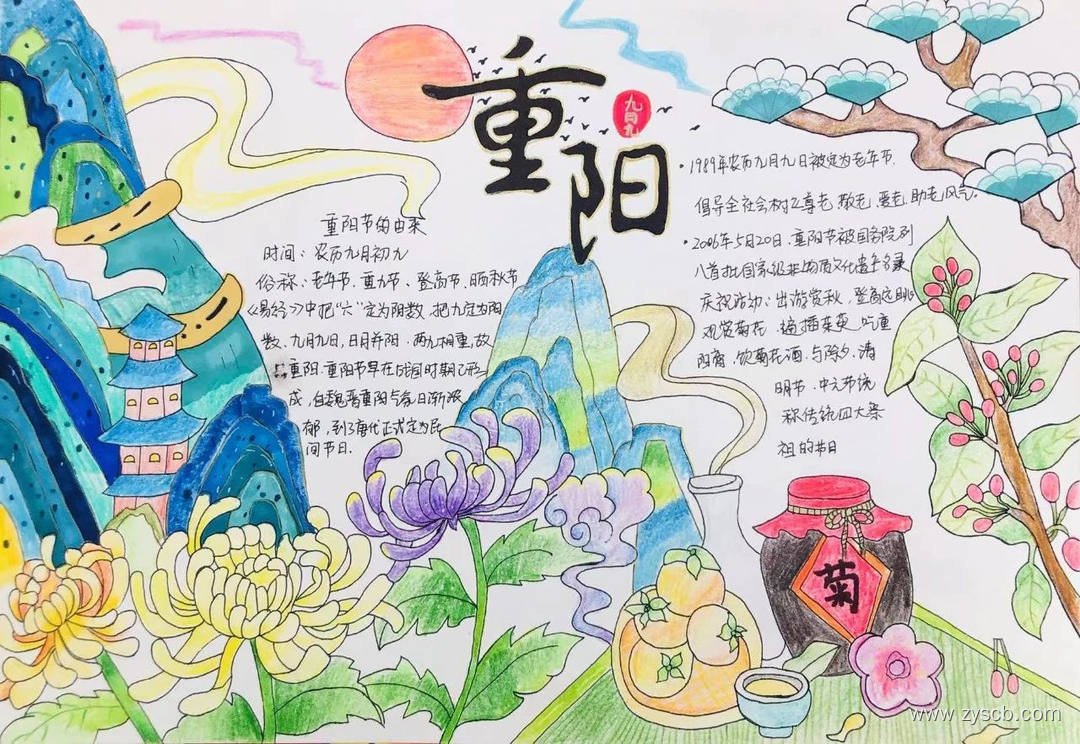 重阳
九月九
重阳节的由来
时间：农历九月初九
俗称：老年节、重九节、登高节、晒秋节
《易经》中把“六”定为阴数，把九定为阳
数，九月九日，日月并阳，两九相重，故
重阳．重阳节早在战国时期已形
成，自魏晋重阳气氛日渐浓
郁，到了唐代正式定为民
间节日．
·1989年农历九月九日被定为老年节．
倡导全社会树立尊老、敬老、爱老、助老风气．
·2006年5月20日．重阳节被国务院列
入首批国家级非物质文化遗产名录
庆祝活动：出游赏秋，登高远眺
观赏菊花．遍插茱萸．吃重
阳糕．饮菊花酒．与除夕、清
明节．中元节统
称传统四大祭
祖的节日
菊
www.zyscb.com